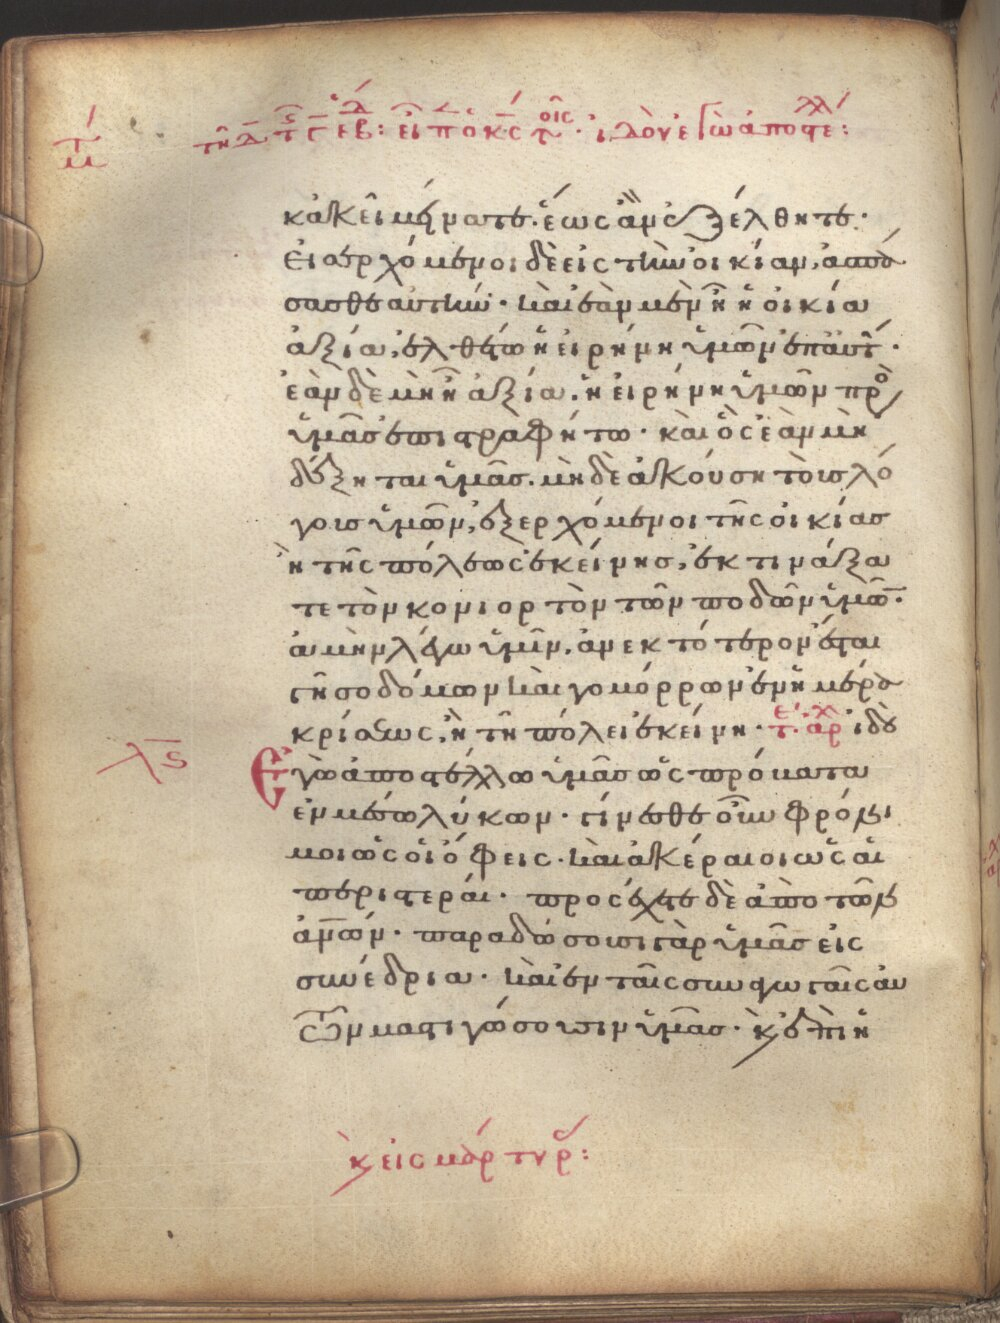 τῇ δ τῆς ς ἑβδ: εἶπεν ὁ κς τοῖς ἰδοὺ ἐγὼ ἀποστέλλ:
κἀκεῖ μείνατε· ἕως ἂν ἐξέλθητε·
εἰσερχόμενοι δὲ εἰς τὴν οἰκίαν, ἀσπά
σασθε αὐτήν· καὶ ἐὰν μὲν ῇ ἡ οἰκία
ἀξία, ἐλθέτω ἡ εἰρήνη ὑμῶν ἐπ' αὐτ·
ἐὰν δὲ μὴ ῇ ἀξία, ἡ εἰρήνη ὑμῶν πρὸ
ὑμᾶς ἐπιστραφήτω· καὶ ὃς ἐὰν μὴ
δέξηται ὑμᾶς, μηδὲ ἀκούση τοὺς λό
γους ὑμῶν, ἐξερχόμενοι τῆς οἰκίας
ἢ τῆς πόλεως ἐκείνης, ἐκτινάξα
τε τὸν κονιορτὸν τῶν ποδῶν ὑμῶ·
ἀμὴν λέγω ὑμῖν, ἀνεκτότερον ἔσται
γῆ σοδόμων καὶ γομόρρων ἐν ἡμέρα
κρίσεως, ἢ τῆ πόλει ἐκείνη· τε· ἀρχ ἰδοὺ
λς Ἐγὼ ἀποστέλλω ὑμᾶς ὡς πρόβατα
ἐν μέσω λύκων· γίνεσθε οὖν φρόνι
μοι ὡς οἱ ὄφεις· καὶ ἀκέραιοι ὡς αἱ
περιστεραί· προσέχετε δὲ ἀπὸ τῶν
ἀνων· παραδώσουσι γὰρ ὑμᾶς εἰς
συνέδρια· καὶ ἐν ταῖς συναγωγαῖς αὐ
τῶν μαστιγώσουσιν ὑμᾶς· κ ἐπὶ ἡ
κ εἰς μάρτυρ: